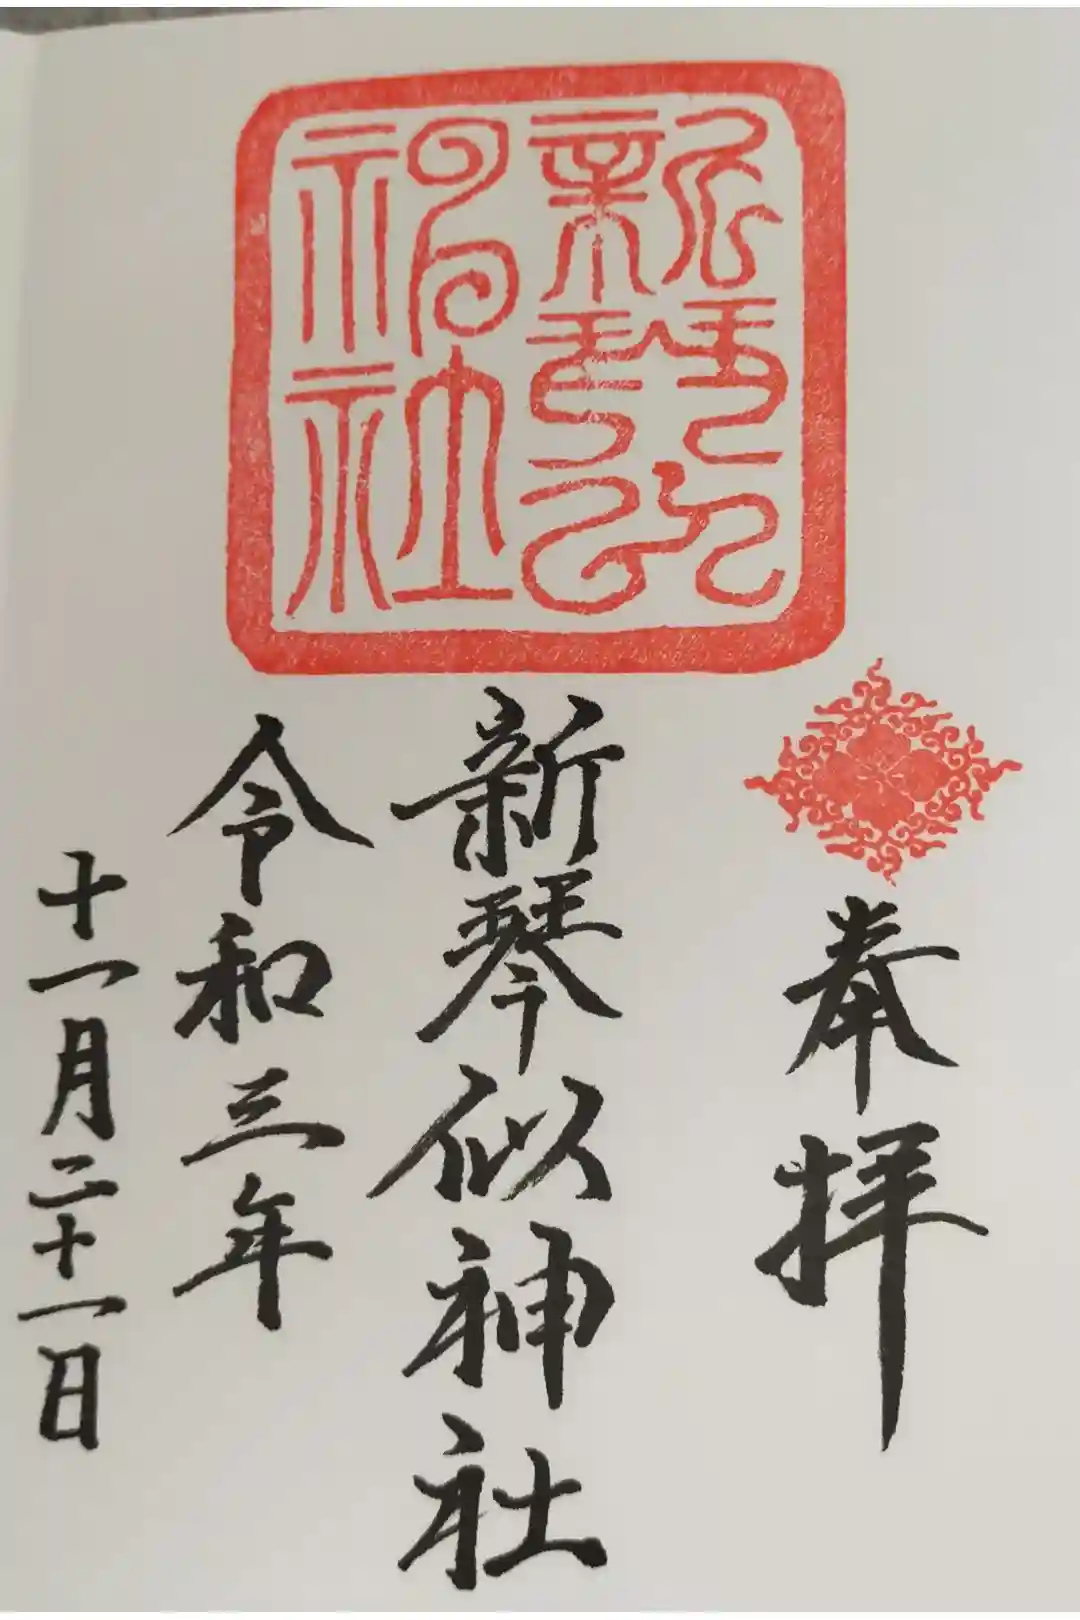 新琴似
神社
奉拝
新琴似神社
令和三年
十一月二十一日